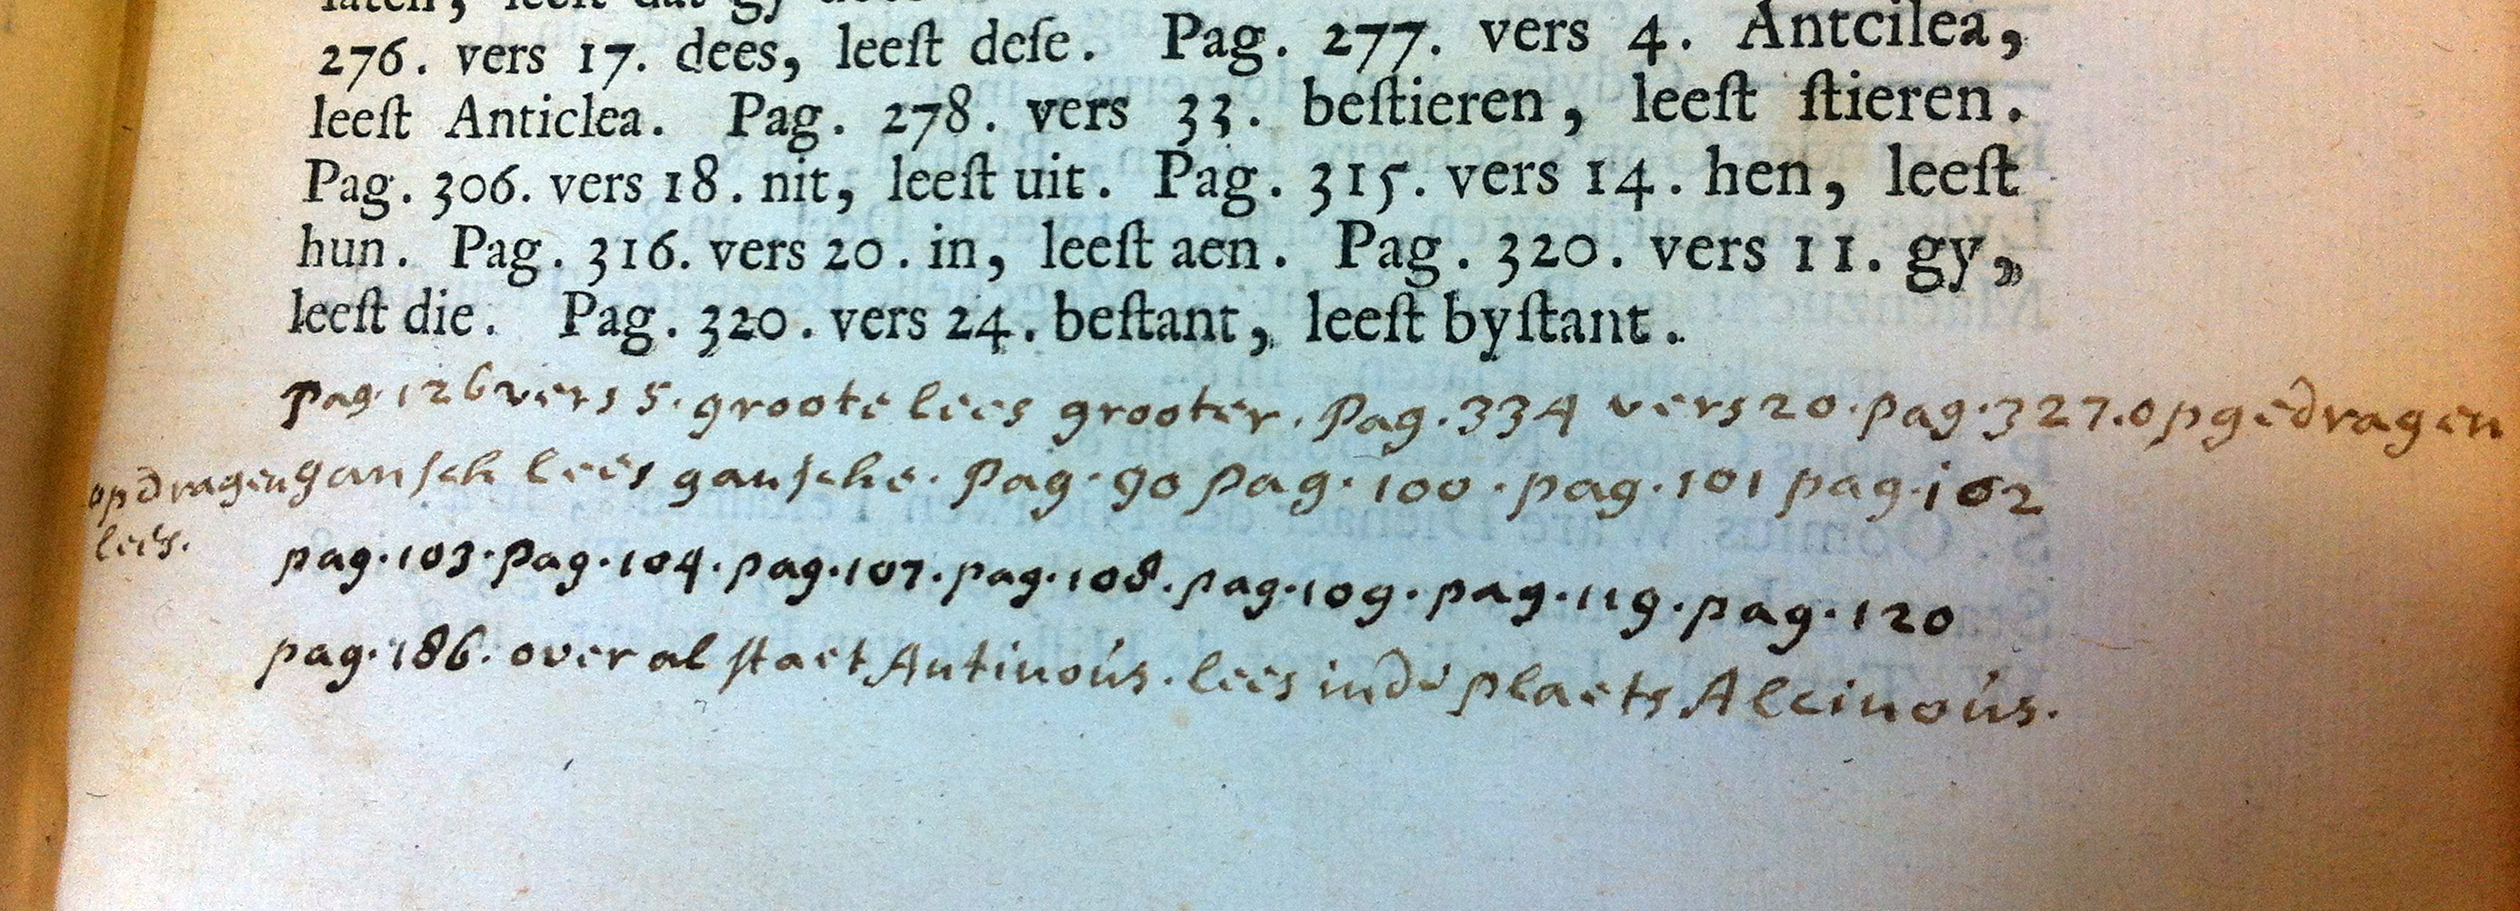 276. vers 17. dees, leeſt deſe. Pag. 277. vers 4. Antcilea,
leeſt Anticlea. Pag. 278. vers 33. beſtieren, leeſt ſtieren.
Pag. 306. vers 18. nit, leeſt uit. Pag. 315. vers 14. hen, leeſt
hun. Pag. 316. vers 20. in, leeſt aen. Pag. 320. vers 11. gy,
leeſt die. Pag. 320. vers 24. beſtant, leeſt byſtant.
Pag. 126 vers 5. groote lees grooter. Pag. 334 vers 20. pag. 327. opgedragen
opdragen gansch lees gansche. Pag. 90 pag. 100. pag. 101 pag. 102
lees.
pag. 103. pag. 104. pag. 107. pag. 108. pag. 109. pag. 119. pag. 120
pag. 186. over al ſtaet Antinoús. lees in de plaets Alcinoús.